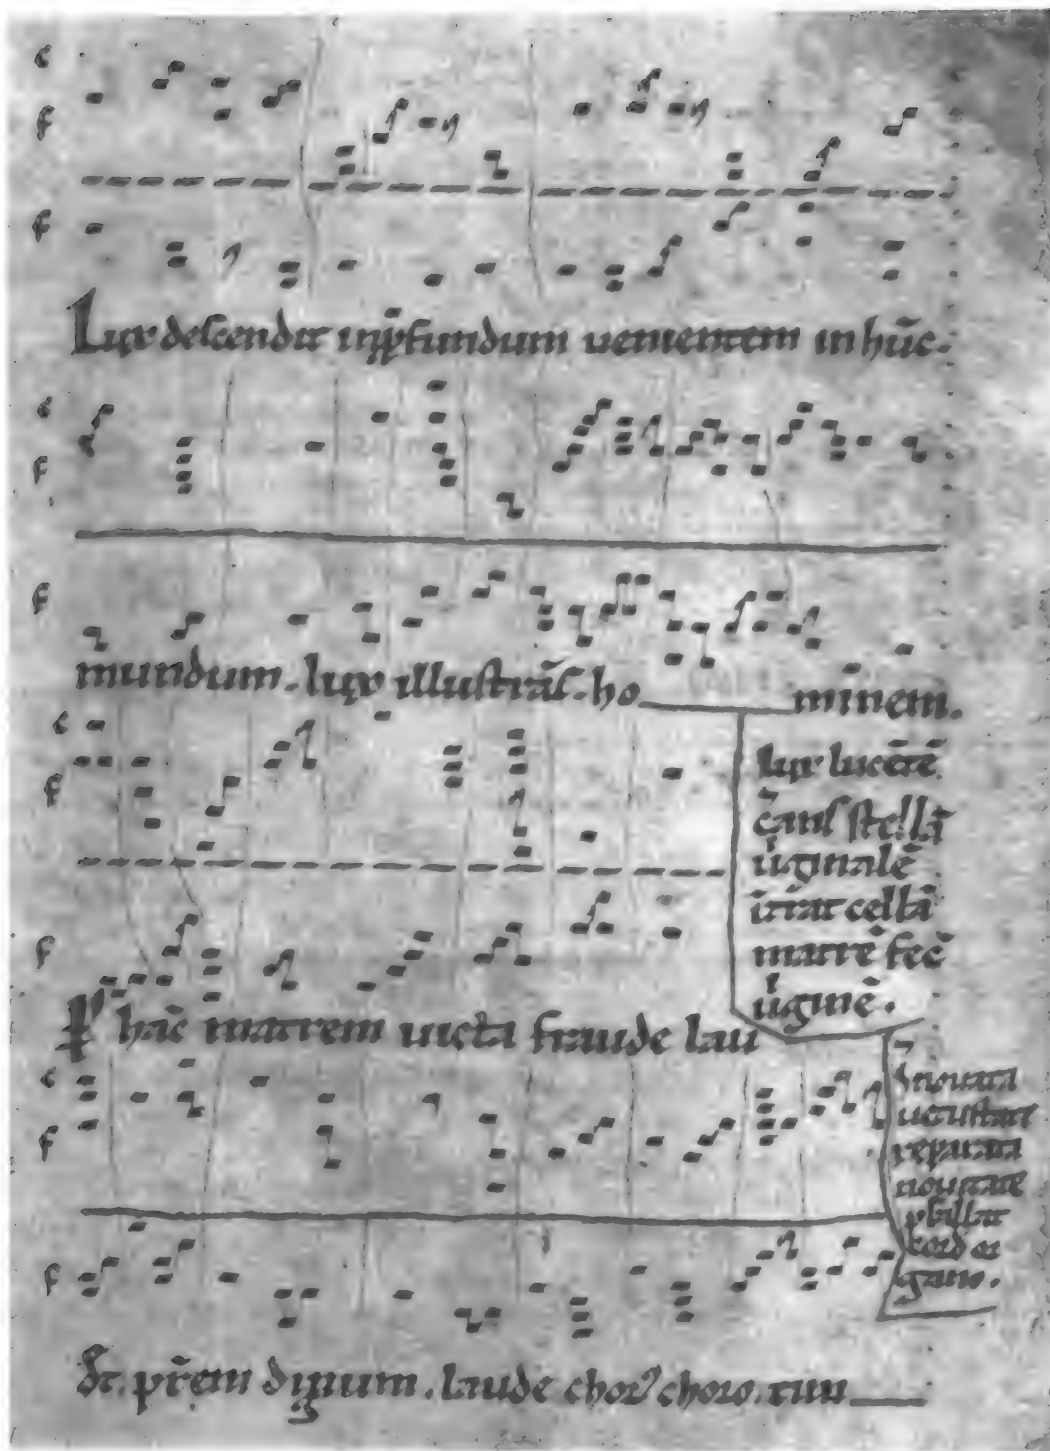 c
f
f
Lux descendit in p̄fundum uenientem in hūc.
c
f
f
mundum. lux illustrās. ho minem.
c
f
lux lucētē
stellā
u̇ginalē
ītrat cellā
matrē fec̄
u̇ginē.
f
P hāc matrem uicta fraude lau
c
f
nouata
uetustate
reparata
nouitate
psallat
gano.
f
Et pr̄em dignum. laude chor choro. tuu